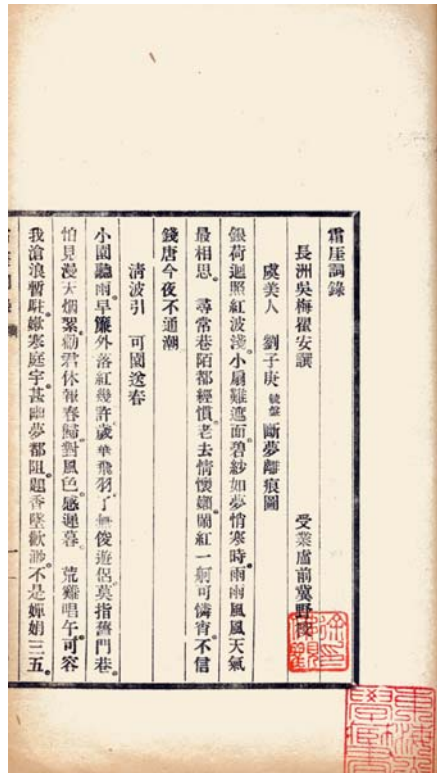 霜厓詞錄
長洲吳梅瞿安譔 受業盧前冀野校
虞美人 劉子庚毓盤斷夢離痕圖
銀荷迴照紅波淺。小扇難遮面。碧紗如夢悄寒時。雨雨風風天氣
最相思。 尋常巷陌都經慣。老去情懷嬾。鬧紅一舸可憐宵。不信
錢唐今夜不通潮
清波引 可園送春
小園聽雨。早簾外落紅幾許。歲華飛羽。了無俊遊侶。莫指舊門巷。
怕見漫天烟絮。勸君休報春歸。對風色。感遲暮。 荒雞唱午。可容
我滄浪暫駐。嫩寒庭宇。甚幽夢都阻。題香墜歡渺。不是嬋娟三五。
一